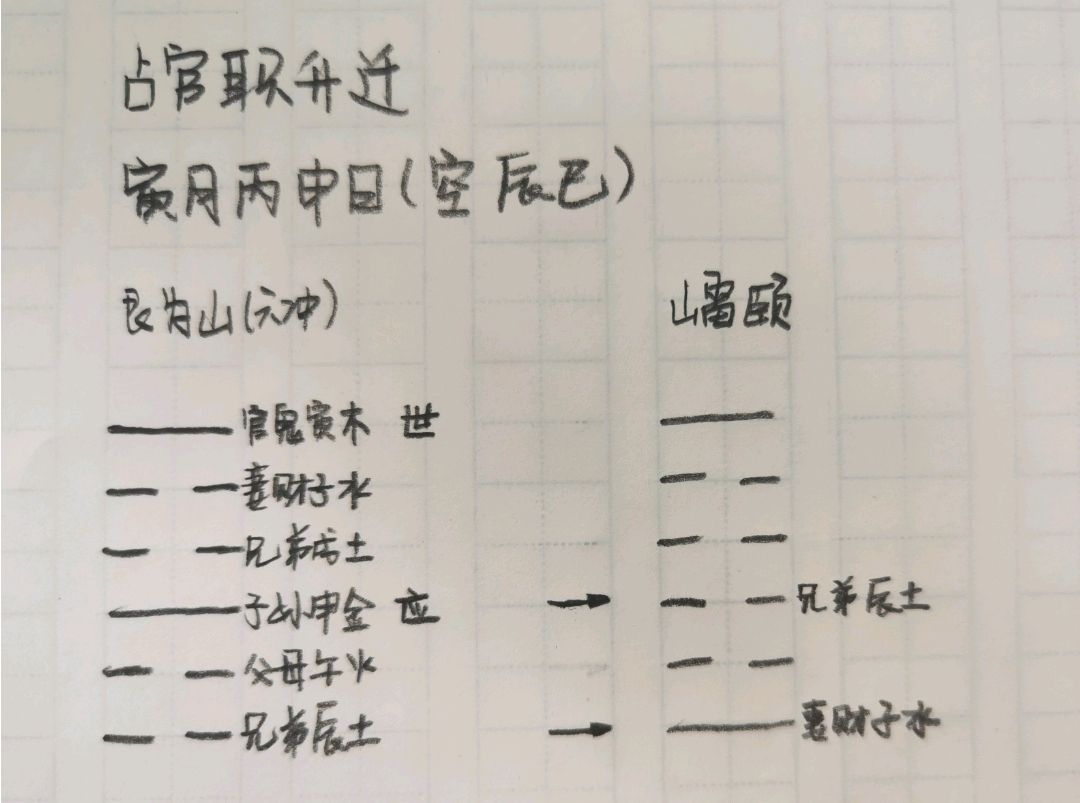 占官职升迁
寅月丙申日(空辰巳)
艮为山(六冲) 山雷颐
官鬼寅木 世
妻财子水
兄弟戌土
子孙申金 应 兄弟辰土
父母午火
兄弟辰土 妻财子水